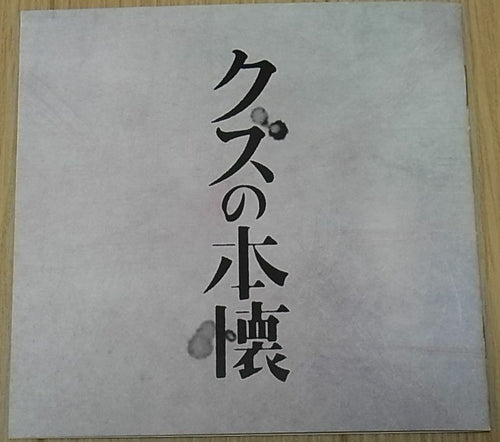 クズの本懐